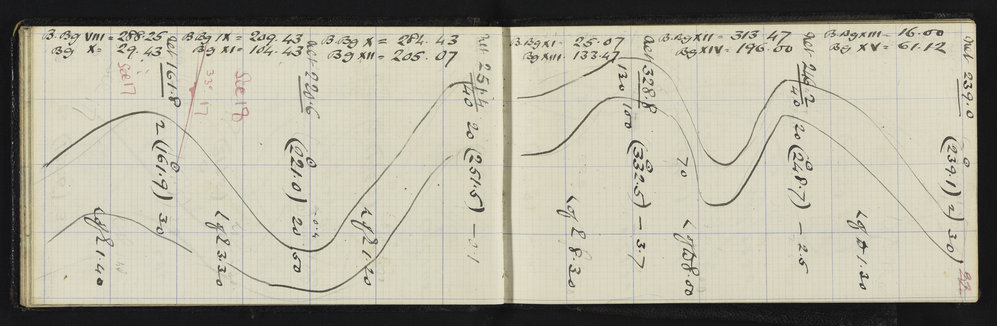 B.Bg VIII = 288.25
Bg X = 29.43
B Bg IX = 209.43
Bg XI = 104.43
B.Bg X = 284.43
Bg XII = 205.07
See 17
161.8
2 (161.9) 30
17
See 18
225.6
(221.0) 20
50
-0.4
251.4
40
20 (251.5) -0.1
Lg 2 1.40
Lg 2 3.30
Lg 2 1.20
B.Bg XI = 25.07
Bg XIII = 133.47
B.Bg XII = 313.47
Bg XIV = 196.00
B Bg XIII = 16.00
Bg XV = 61.12
130
100
328.8
(332.5) -3.7
70
40
20 (248.7) -2.5
239.0
(239.1) 2) 30)
Lg 2 8.30
8.00
1.30